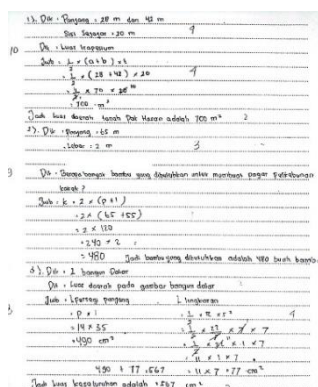 1). Dik : Panjang : 28 m dan 42 m
Sisi Sejajar : 20 m 4
10 Dit : Luas trapesium
Jwb : 1/2 × (a+b) × t
: 1/2 × (28 + 42) × 20 4
: 1/2 × 70 × 20 10
: 700 m²
Jadi luas daerah tanah Pak Hasan adalah 700 m² 2
2). Dik : Panjang : 65 m
Lebar : 2 m 3
9 Dit : Berapa banyak bambu yang dibutuhkan untuk membuat pagar
kotak ?
Jwb : k : 2 × (p+l)
: 2 × (65 + 55)
: 2 × 120
: 240 × 2
: 480 Jadi bambu yang dibutuhkan adalah 480 buah bambu
3). Dik : 2 bangun Datar
Dit : Luas daerah pada gambar bangun datar
Jwb : L persegi panjang L lingkaran
: p × l : 1/2 × π × r² 4
: 14 × 35 : 1/2 × 22/7 × 7 × 7
: 490 cm² : 1/2 × 22 × 1 × 7
: 11 × 1 × 7
490 + 77 : 567 : 11 × 7 : 77 cm²
Jadi luas keseluruhan adalah : 567 cm²